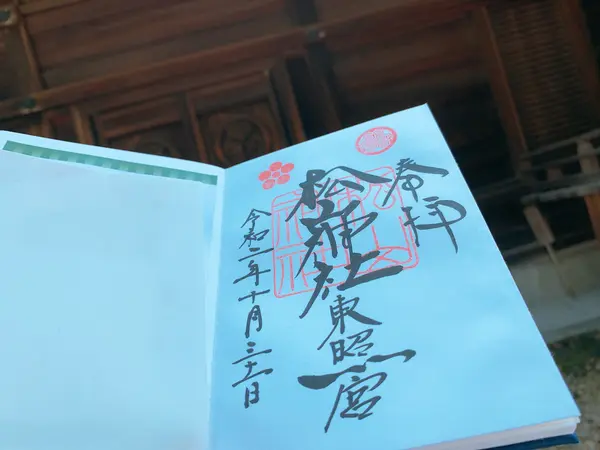 奉拝
松山神社
東照宮
令和二年十月三十一日